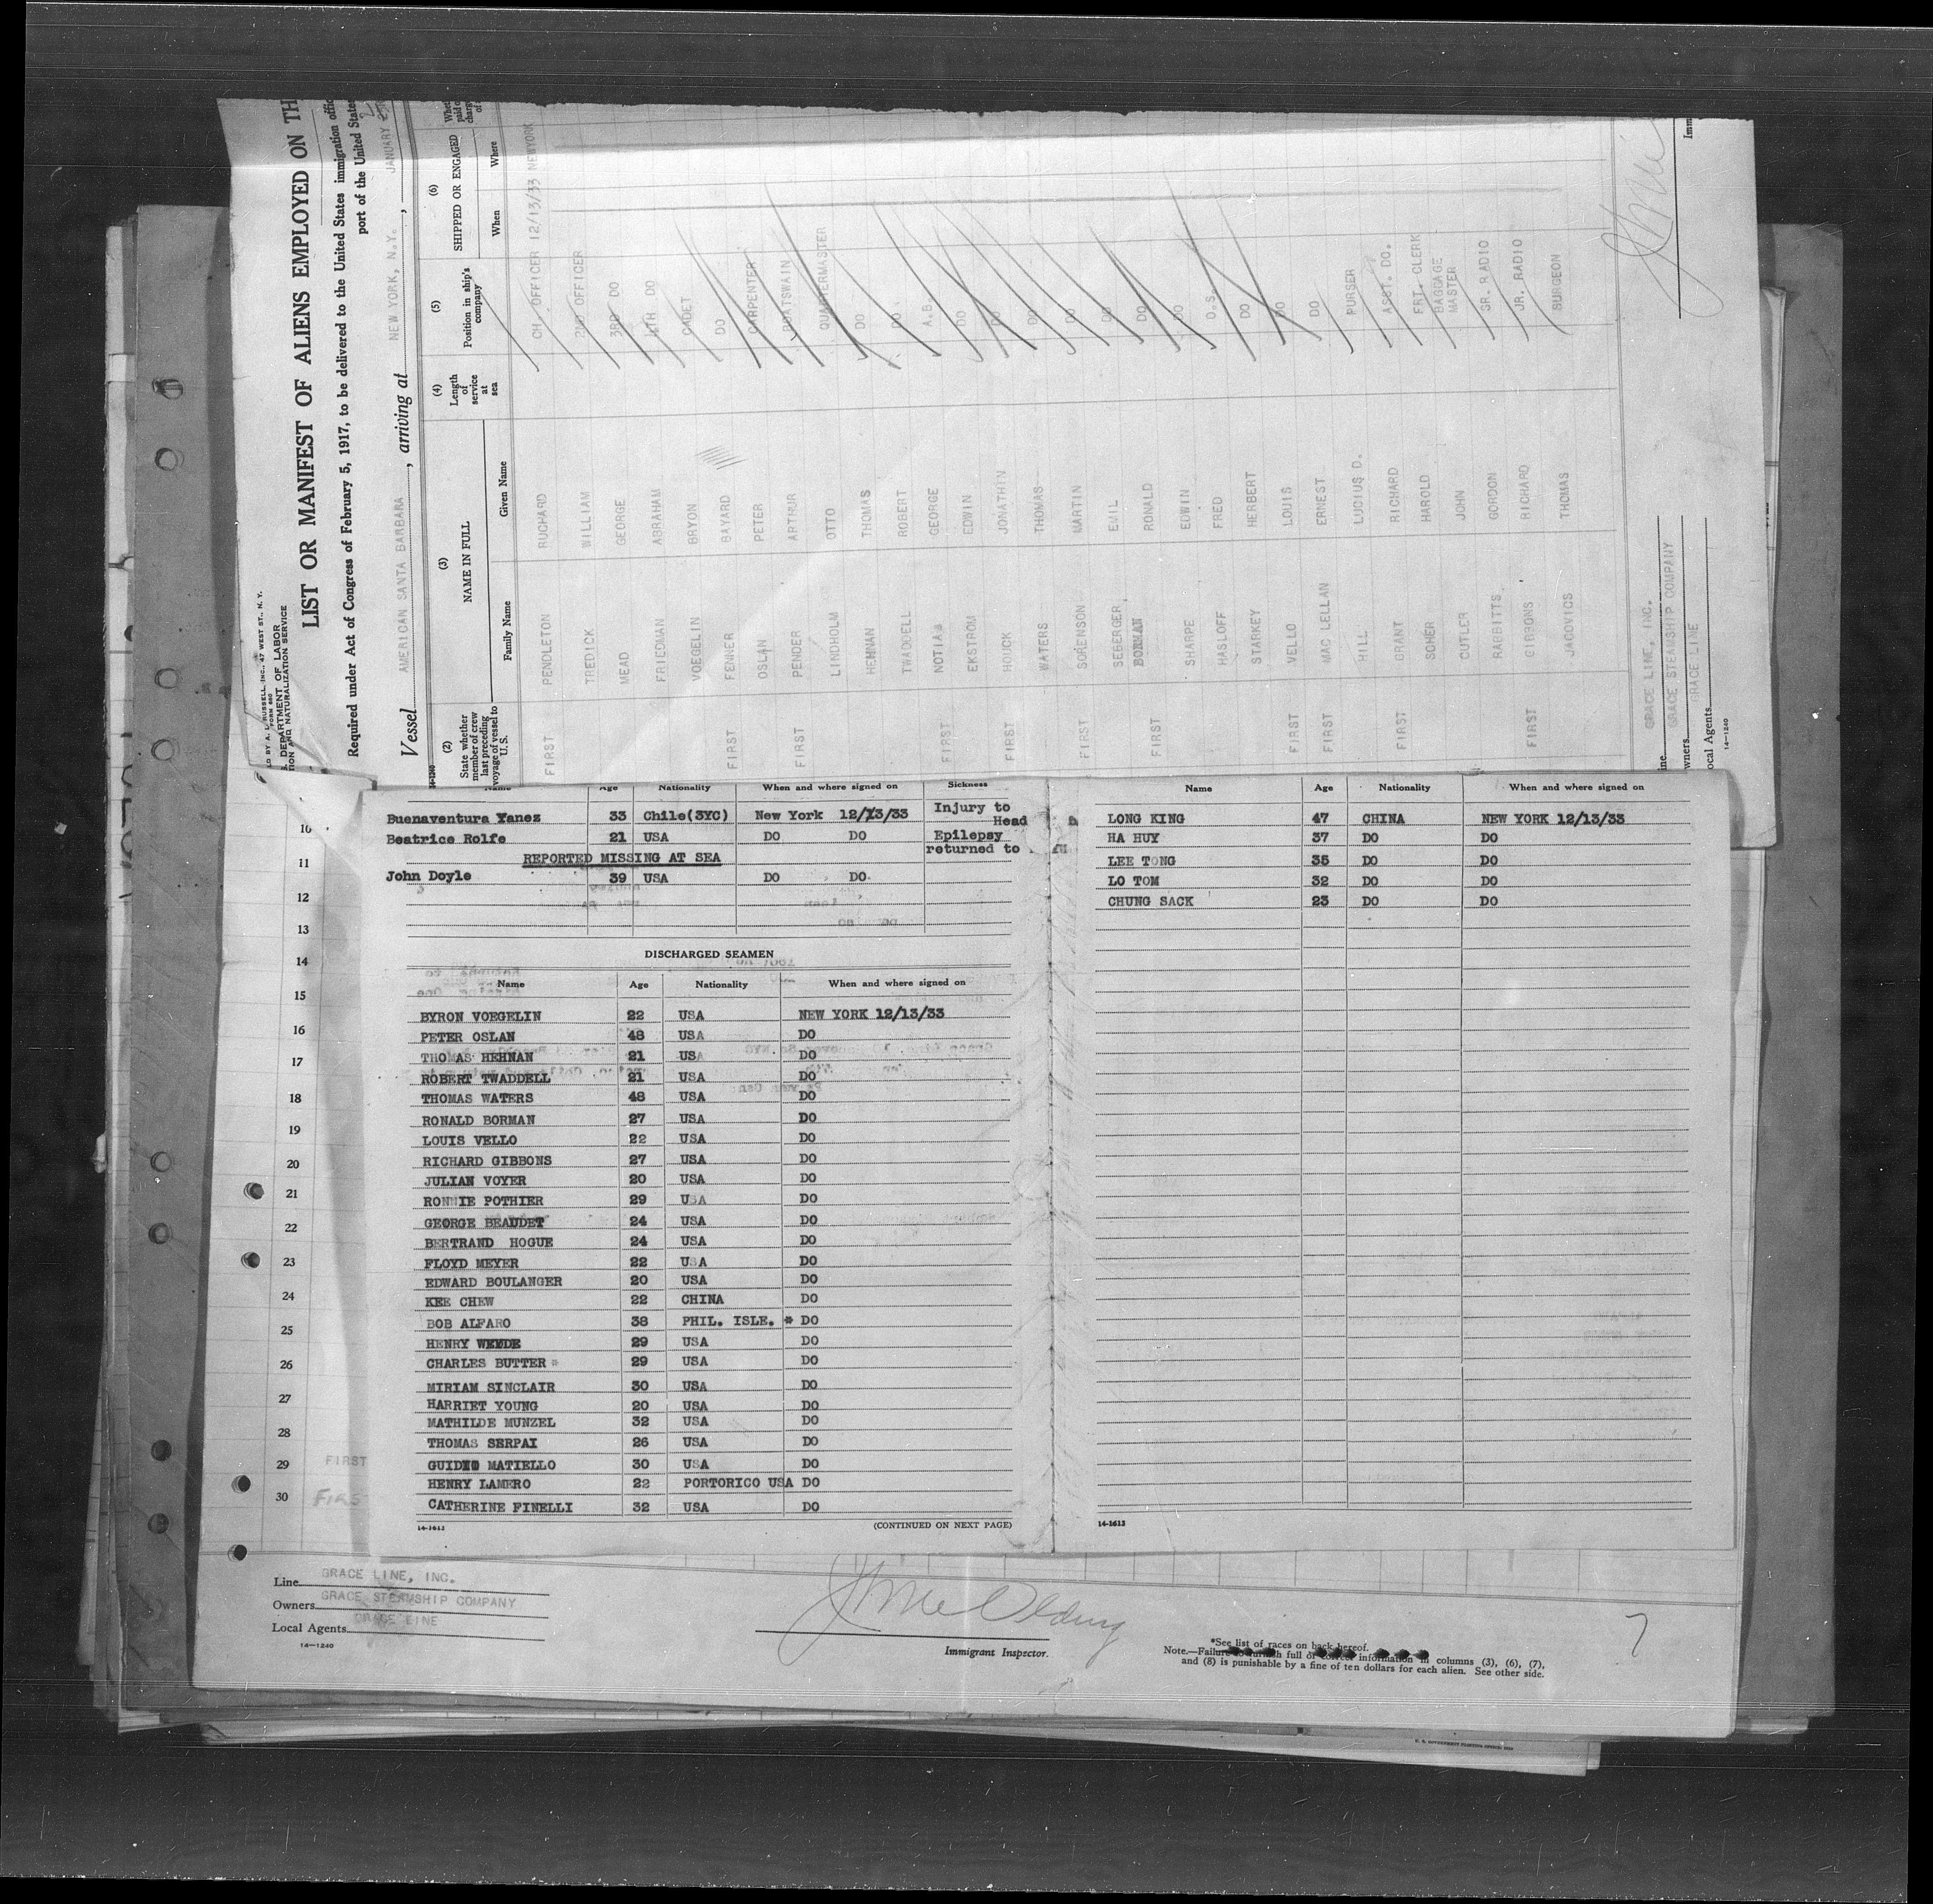 LIST OR MANIFEST OF ALIENS EMPLOYED ON TH
Required under Act of Congress of February 5, 1917, to be delivered to the United States immigration offic
port of the United State
Vessel AMERICAN SANTA BARBARA, arriving at NEW YORK, N.Y., JANUARY
LD BY A. L. RUSSELL, INC., 47 WEST ST., N. Y.
FORM 680
DEPARTMENT OF LABOR
TION AND NATURALIZATION SERVICE
14-1240
(2) State whether member of crew last preceding voyage of vessel to U. S.
(3) NAME IN FULL
Family Name Given Name
(4) Length of service at sea
(5) Position in ship's company
(6) SHIPPED OR ENGAGED
When Where
FIRST PENDLETON RUCHARD CH OFFICER 12/13/33 NEWYORK
TREDICK WILLIAM 2ND OFFICER
MEAD GEORGE 3RD DO
FRIEDMAN ABRAHAM 4TH DO
VOEGELIN BRYON CADET
FIRST FENNER BAYARD DO
OSLAN PETER CARPENTER
FIRST PENDER ARTHUR BOATSWAIN
LINDHOLM OTTO QUARTERMASTER
HEHNAN THOMAS DO
TWADDELL ROBERT DO
FIRST NOTIA GEORGE A.B.
EKSTROM EDWIN DO
FIRST HOUCK JONATHIN DO
WATERS THOMAS DO
FIRST SORENSON MARTIN DO
SEBERGER, EMIL DO
FIRST BORMAN RONALD DO
SHARPE EDWIN DO
HASLOFF FRED O.S.
STARKEY HERBERT DO
FIRST VELLO LOUIS DO
FIRST MAC LELLAN ERNEST DO
HILL LUCIUS D. PURSER
FIRST GRANT RICHARD ASST. DO.
SOHER HAROLD FRT. CLERK
CUTLER JOHN BAGGAGE MASTER
RABBITTS GORDON SR. RADIO
FIRST GIBSONS RICHARD JR. RADIO
JAGOVICS THOMAS SURGEON
ine GRACE LINE, INC.
wners GRACE STEAMSHIP COMPANY
ocal Agents GRACE LINE
14-1240
Imm
Name Age Nationality When and where signed on Sickness
Buenaventura Yanez 33 Chile(SYC) New York 12/13/33 Injury to Head
Beatrice Rolfe 21 USA DO DO Epilepsy returned to
REPORTED MISSING AT SEA
John Doyle 39 USA DO DO.
DISCHARGED SEAMEN
Name Age Nationality When and where signed on
BYRON VOEGELIN 22 USA NEW YORK 12/13/33
PETER OSLAN 48 USA DO
THOMAS HEHNAN 21 USA DO
ROBERT TWADDELL 21 USA DO
THOMAS WATERS 48 USA DO
RONALD BORMAN 27 USA DO
LOUIS VELLO 22 USA DO
RICHARD GIBBONS 27 USA DO
JULIAN VOYER 20 USA DO
RONNIE POTHIER 29 USA DO
GEORGE BEAUDET 24 USA DO
BERTRAND HOGUE 24 USA DO
FLOYD MEYER 22 USA DO
EDWARD BOULANGER 20 USA DO
KEE CHEW 22 CHINA DO
BOB ALFARO 38 PHIL. ISLE. * DO
HENRY WEYDE 29 USA DO
CHARLES BUTTER* 29 USA DO
MIRIAM SINCLAIR 30 USA DO
HARRIET YOUNG 20 USA DO
MATHILDE MUNZEL 32 USA DO
THOMAS SERPAI 26 USA DO
GUIDO MATIELLO 30 USA DO
HENRY LAMERO 22 PORTORICO USA DO
CATHERINE FINELLI 32 USA DO
14-1613 (CONTINUED ON NEXT PAGE)
Name Age Nationality When and where signed on
LONG KING 47 CHINA NEW YORK 12/13/33
HA HUY 37 DO DO
LEE TONG 35 DO DO
LO TOM 32 DO DO
CHUNG SACK 23 DO DO
14-1613
10
11
12
13
14
15
16
17
18
19
20
21
22
23
24
25
26
27
28
29 FIRST
30 FIRST
Line GRACE LINE, INC.
Owners GRACE STEAMSHIP COMPANY
Local Agents GRACE LINE
14-1240
Immigrant Inspector.
*See list of races on back hereof.
Note.—Failure to furnish full or correct information in columns (3), (6), (7),
and (8) is punishable by a fine of ten dollars for each alien. See other side.
7